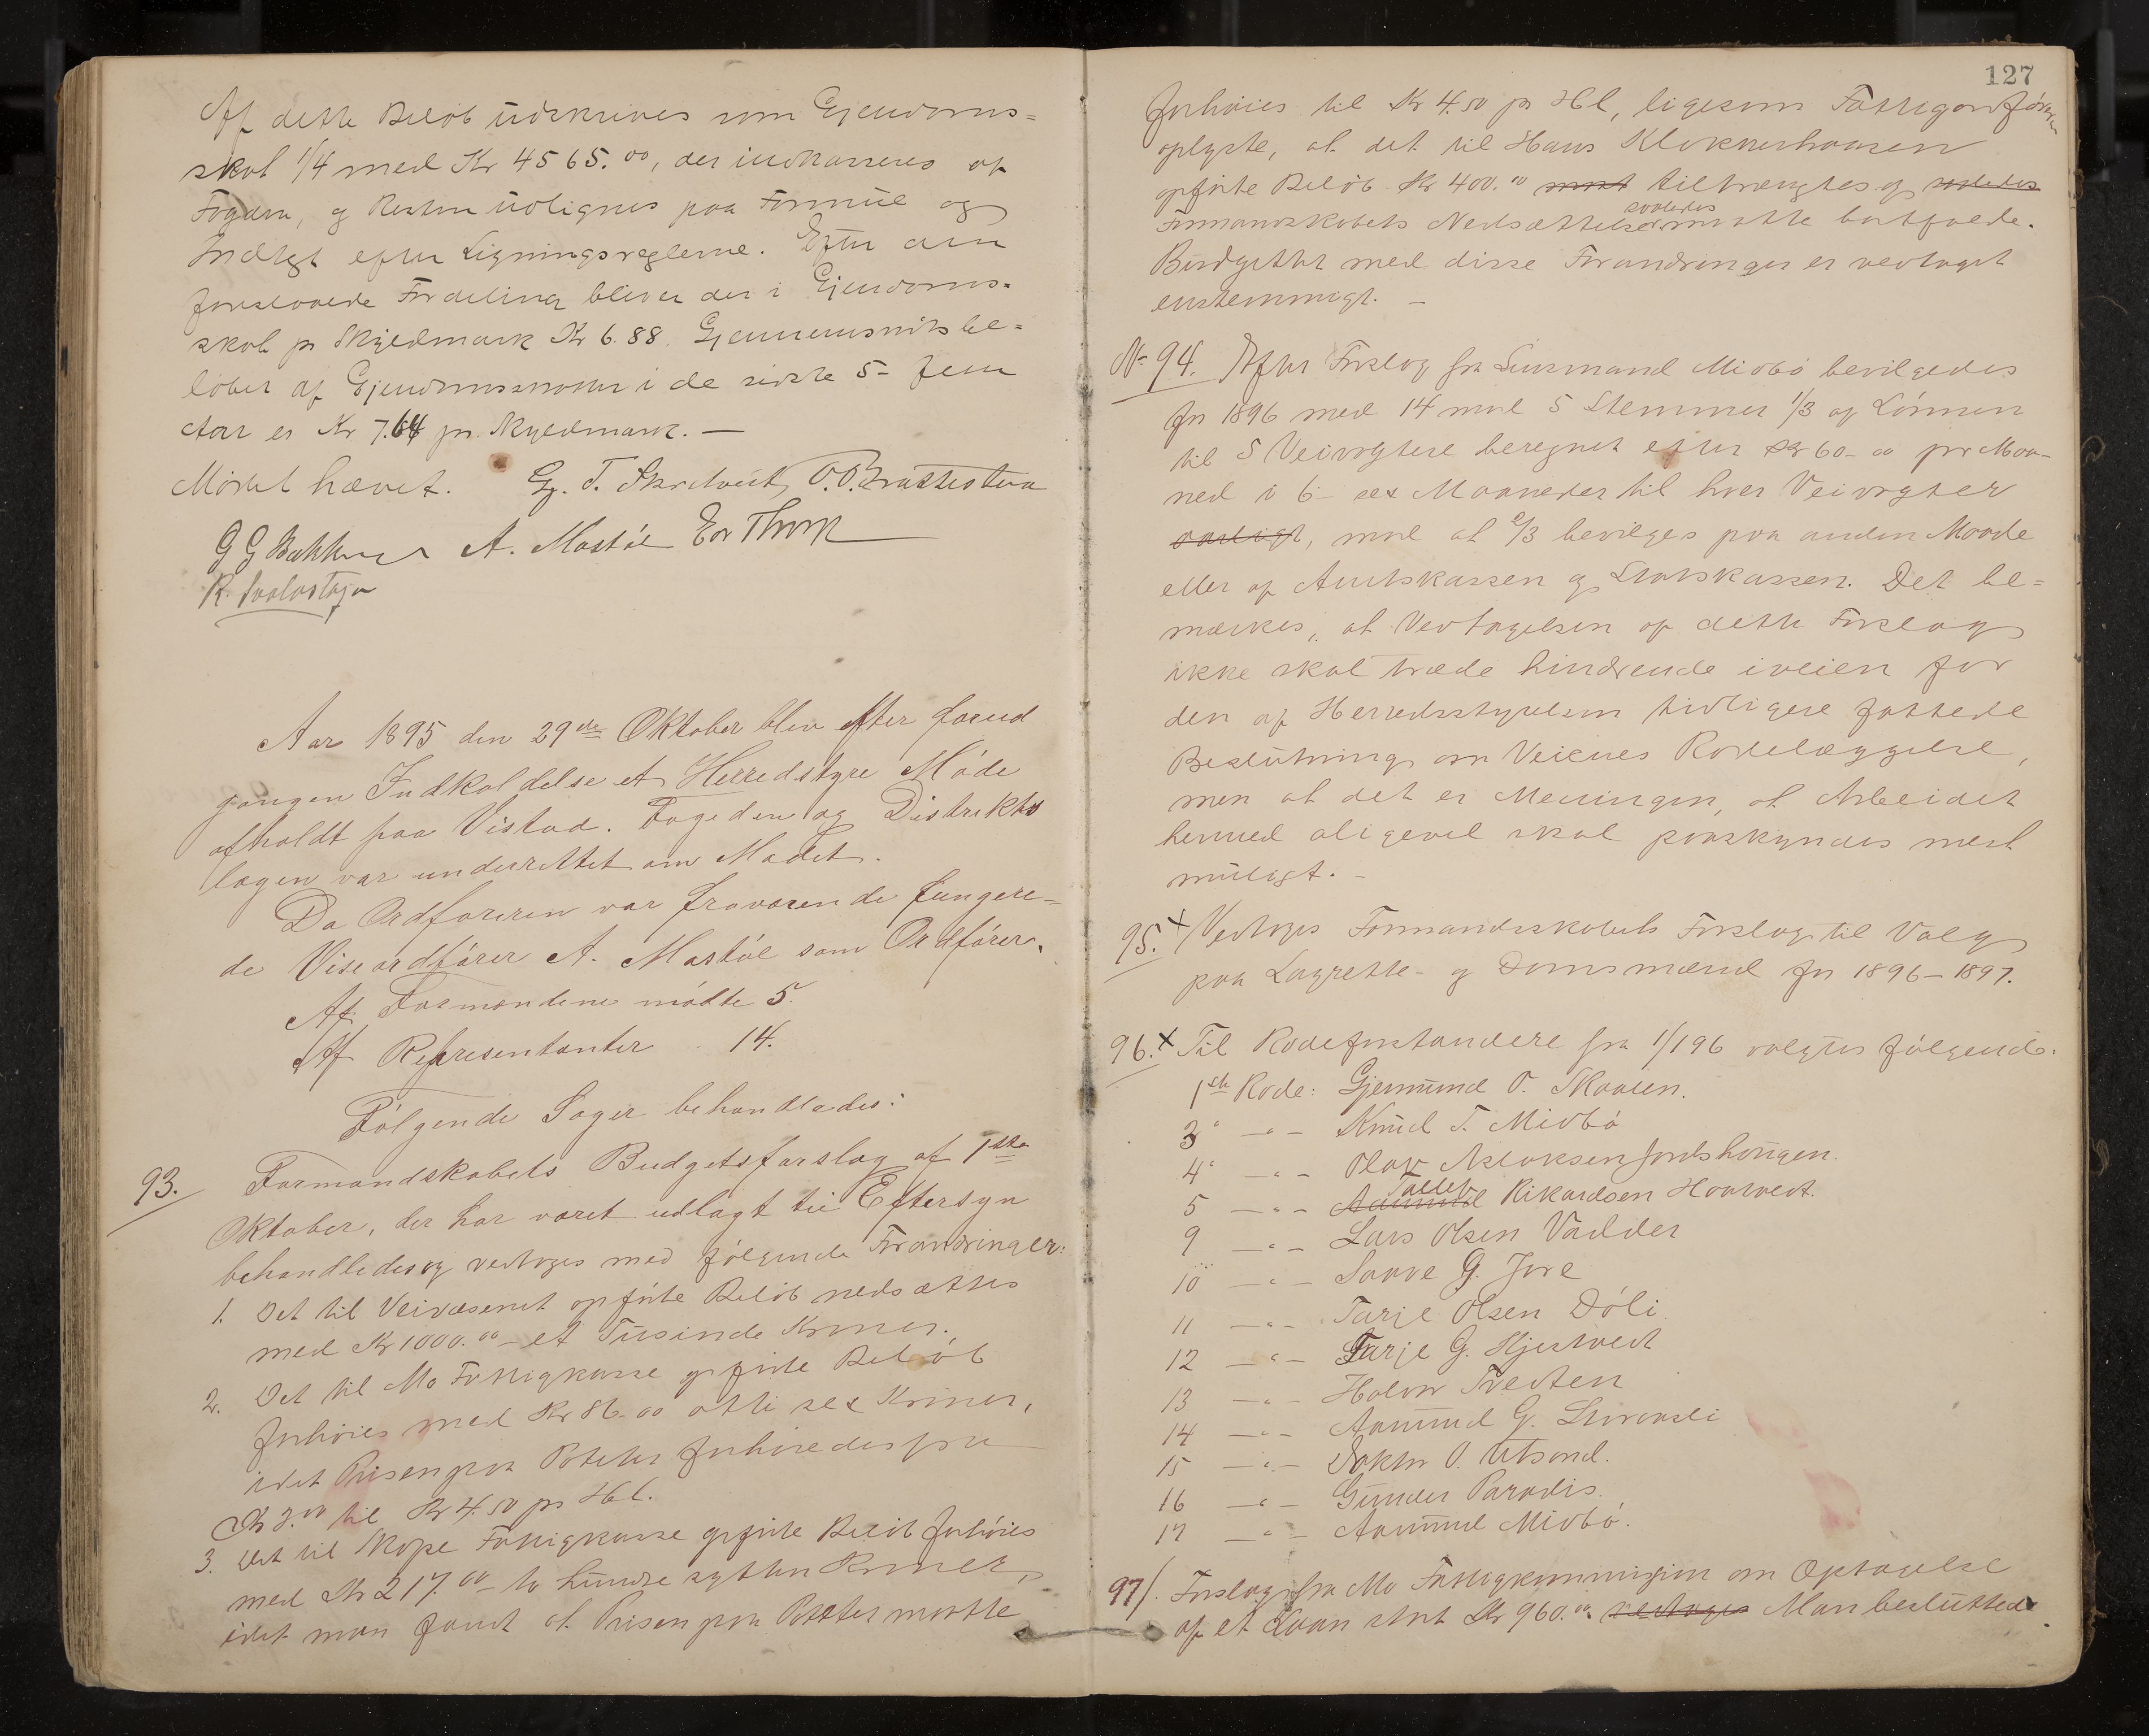 Af dette Beløb udskrives som Gjendoms=
skat 1/4 med Kr 4565.00, der indkasseres af
Fogden, og Resten udlignes paa Formue og
Indtægt efter Ligningsreglerne. Efter den
foreslaaede Fordeling bliver der i Gjendoms=
skat pr Skyldmark Kr 6.88. Gjennemsnitsbe=
løbet af Gjendomsskatten i de sidste 5- fem
Aar er Kr 7.64 pr. Skyldmark. —
Mødet hævet. G. T. O. O. Brattestein
G G Bakken A. Mostøl
R.
Aar 1895 den 29de Oktober blev efter forud
gangen Indkaldelse et Herredstyre Møde
afholdt paa Vistad. Fogeden og Distrikts
lægen var underrettet om Mødet.
Da Ordføreren var fraværende fungere=
de Viseordfører A. Mostøl som Ordfører.
Af Formændene mødte 5.
Af Representanter 14.
Følgende Sager behandledes:
93. Formandskabets Budgetsforslag af 1ste
Oktober, der har været udlagt til Eftersyn
behandledes og vedtoges med følgende Forandringer:
1. Det til Veivæsenet opførte Beløb nedsættes
med Kr 1000.00 - et Tusinde Kroner.
2. Det til Mo Fattigkasse opførte Beløb
forhøies med Kr 86.00 otti sex Kroner,
idet Prisen paa Poteter forhøiedes fra
Kr 3.00 til Kr 4.50 pr Hl.
3. Det til Skafse Fattigkasse opførte Beløb forhøies
med Kr 217.00 - to hundre sytten Kroner,
idet man fandt at Prisen paa Poteter maatte
127
forhøies til Kr 4.50 pr Hl, ligesom Fattigordføreren
oplyste, at det til Hans Klokkerhaasen
opførte Beløb Kr 400.00 tiltrængtes og saaledes
saaledes
Formandskabets Nedsættelse maatte bortfalde.
Budgettet med disse Forandringer er vedtaget
enstemmigt. —
No 94. Efter Forslag fra Lensmand Midbø bevilgedes
for 1896 med 14 mod 5 Stemmer 1/3 af Lønnen
til 5 Veivogtere beregnet efter Kr 60-00 pr Maa-
ned i 6- sex Maaneder til hver Veivogter
aarligt, mod at 2/3 bevilges paa anden Maade
eller af Amtskassen og Statskassen. Det be=
mærkes, at Vedtagelsen af dette Forslag
ikke skal træde hindrende iveien for
den af Herredsstyrelsen tidligere fattede
Beslutning om Veienes Rodelæggelse,
men at det er Meningen, at Arbeidet
hermed aligevel skal paaskyndes mest
muligt. -
95. x Vedtoges Formandsskabets Forslag til Valg
paa Lagrette- og Domsmænd for 1896-1897.
96. x Til Rodeforstandere fra 1/1 96 valgtes følgende:
1ste Rode: Gjermund O. Skaalen.
3 " — " — Knud T. Midbø
4 " — " — Olav Aslaksen Jordshougen.
5 — " — Aamund Rikardsen Hovtvedt.
9 — " — Lars Olsen Vadder
10 — " — Saave G. Jore
11 — " — Tarje Olsen Døli
12 — " — Tarje G. Hjestvedt
13 — " — Halvor Tvedten
14 — " — Aamund G.
15 — " — Doktor O. Utsond.
16 — " — Gunder Paradis.
17 — " — Aamund Midbø.
97/. Forslag fra Mo Fattigkommisjon om Optagelse
af et Laan stort Kr 960.00 vedtoges Man besluttede